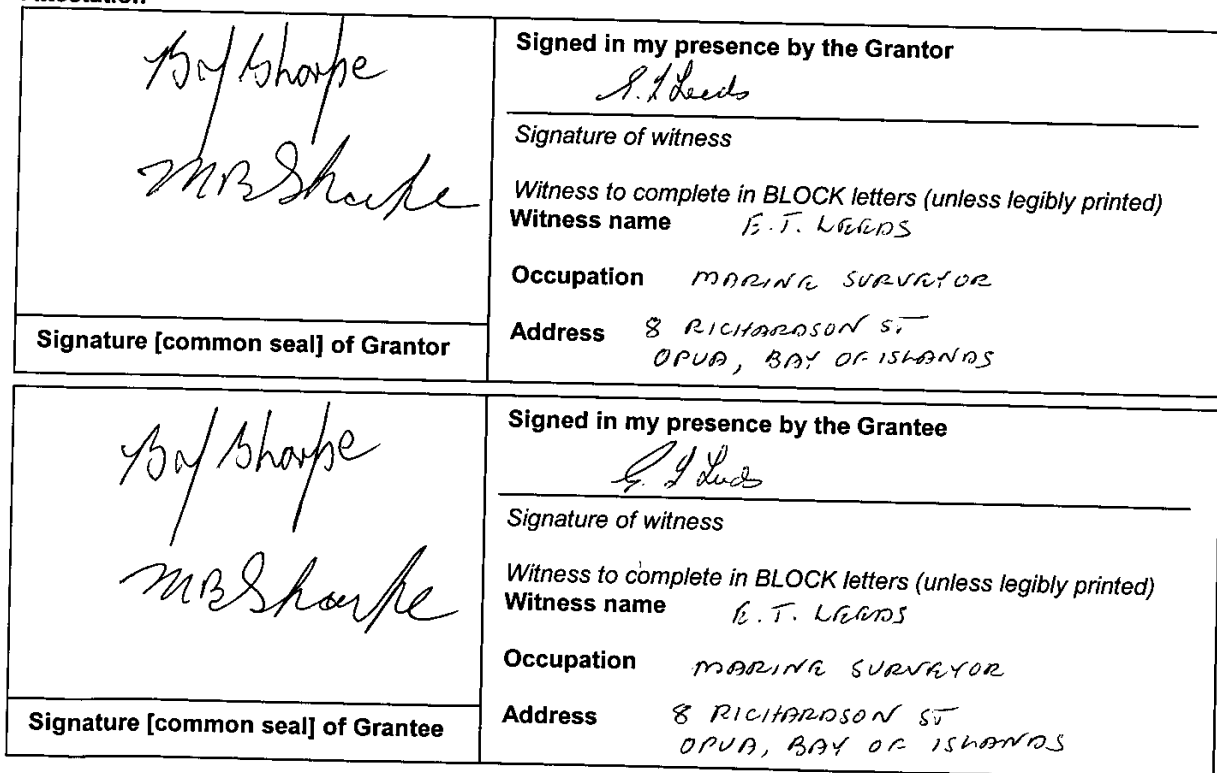 Sharpe
MB Sharpe
Signature [common seal] of Grantor
Signed in my presence by the Grantor
E.T Leeds
Signature of witness
Witness to complete in BLOCK letters (unless legibly printed)
Witness name E.T. LEEDS
Occupation MARINE SURVEYOR
Address 8 RICHARDSON ST
OPUA, BAY OF ISLANDS
Sharpe
MB Sharpe
Signature [common seal] of Grantee
Signed in my presence by the Grantee
E T Leeds
Signature of witness
Witness to complete in BLOCK letters (unless legibly printed)
Witness name E.T. LEEDS
Occupation MARINE SURVEYOR
Address 8 RICHARDSON ST
OPUA, BAY OF ISLANDS